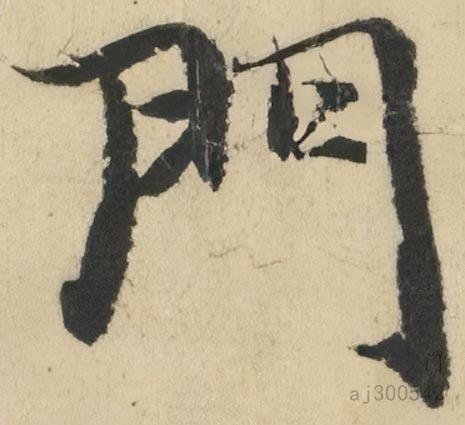 門
门
aj300542